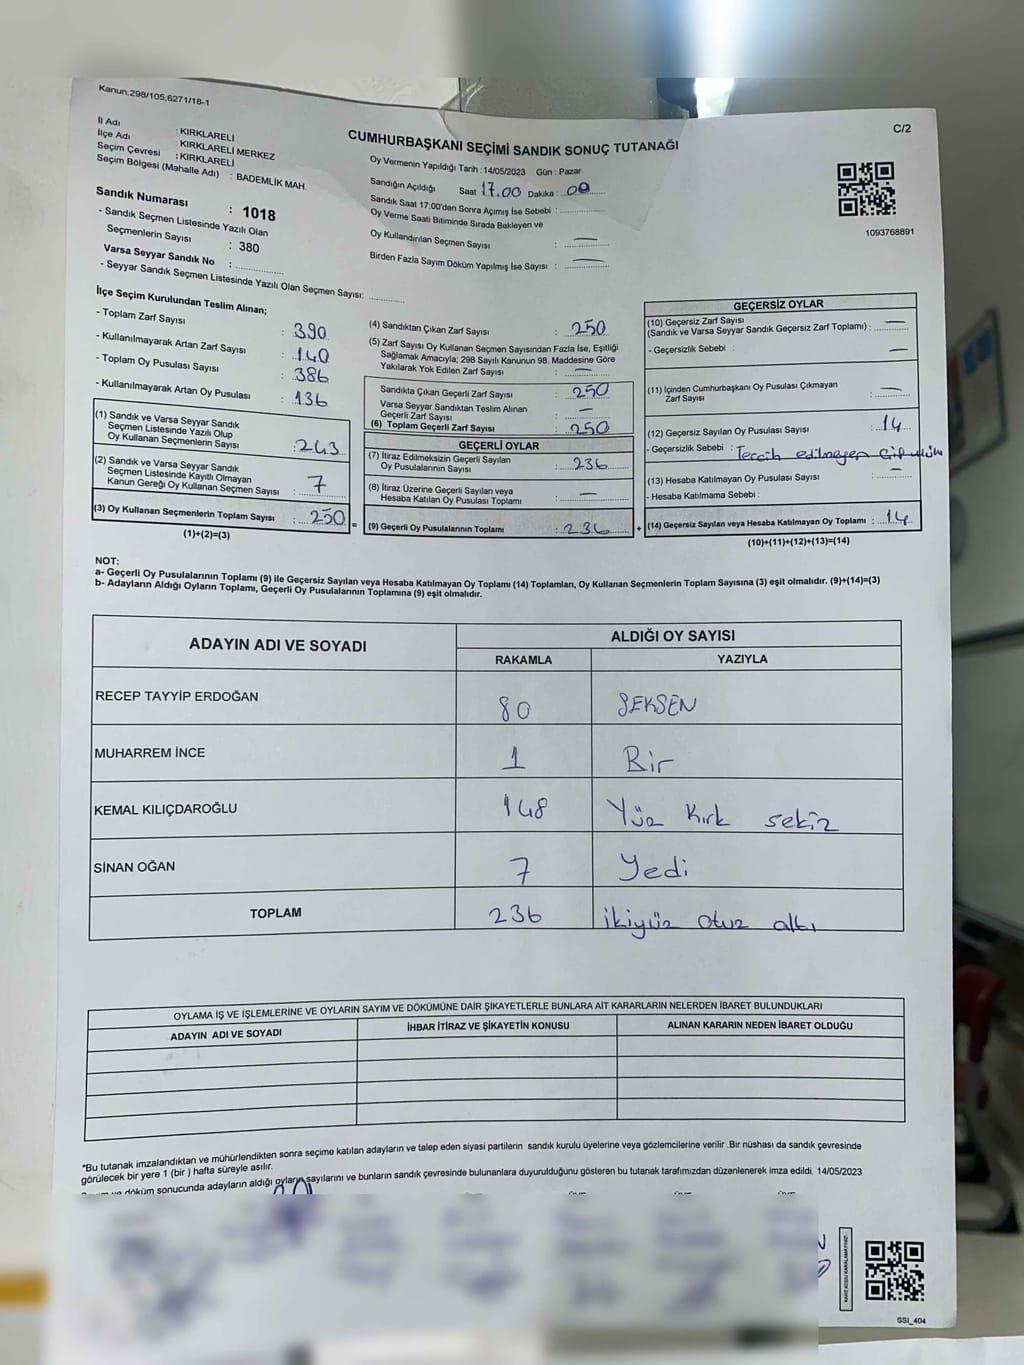 Kanun;298/105;6271/18-1
C/2
İl Adı : KIRKLARELİ
İlçe Adı : KIRKLARELİ MERKEZ
Seçim Çevresi : KIRKLARELİ
Seçim Bölgesi (Mahalle Adı) : BADEMLİK MAH.
CUMHURBAŞKANI SEÇİMİ SANDIK SONUÇ TUTANAĞI
Oy Vermenin Yapıldığı Tarih :14/05/2023 Gün : Pazar
Sandığın Açıldığı Saat 17.00 Dakika : 00
Sandık Saat 17:00'den Sonra Açımış İse Sebebi :
Oy Verme Saati Bitiminde Sırada Bekleyen ve
Oy Kullandırılan Seçmen Sayısı : —
Birden Fazla Sayım Döküm Yapılmış İse Sayısı : —
1093768891
Sandık Numarası : 1018
- Sandık Seçmen Listesinde Yazılı Olan
Seçmenlerin Sayısı : 380
Varsa Seyyar Sandık No :
- Seyyar Sandık Seçmen Listesinde Yazılı Olan Seçmen Sayısı:
İlçe Seçim Kurulundan Teslim Alınan;
- Toplam Zarf Sayısı : 390
- Kullanılmayarak Artan Zarf Sayısı : 140
- Toplam Oy Pusulası Sayısı : 386
- Kullanılmayarak Artan Oy Pusulası : 136
(1) Sandık ve Varsa Seyyar Sandık
Seçmen Listesinde Yazılı Olup
Oy Kullanan Seçmenlerin Sayısı : 243
(2) Sandık ve Varsa Seyyar Sandık
Seçmen Listesinde Kayıtlı Olmayan
Kanun Gereği Oy Kullanan Seçmen Sayısı : 7
(3) Oy Kullanan Seçmenlerin Toplam Sayısı : 250
(1)+(2)=(3)
=
(4) Sandıktan Çıkan Zarf Sayısı : 250
(5) Zarf Sayısı Oy Kullanan Seçmen Sayısından Fazla İse, Eşitliği
Sağlamak Amacıyla; 298 Sayılı Kanunun 98. Maddesine Göre
Yakılarak Yok Edilen Zarf Sayısı : —
Sandıkta Çıkan Geçerli Zarf Sayısı : 250
Varsa Seyyar Sandıktan Teslim Alınan
Geçerli Zarf Sayısı : —
(6) Toplam Geçerli Zarf Sayısı : 250
GEÇERLİ OYLAR
(7) İtiraz Edilmeksizin Geçerli Sayılan
Oy Pusulalarının Sayısı : 236
(8) İtiraz Üzerine Geçerli Sayılan veya
Hesaba Katılan Oy Pusulası Toplamı : —
(9) Geçerli Oy Pusulalarının Toplamı : 236
+
GEÇERSİZ OYLAR
(10) Geçersiz Zarf Sayısı —
(Sandık ve Varsa Seyyar Sandık Geçersiz Zarf Toplamı) :
- Geçersizlik Sebebi : —
(11) İçinden Cumhurbaşkanı Oy Pusulası Çıkmayan
Zarf Sayısı : —
(12) Geçersiz Sayılan Oy Pusulası Sayısı : 14
- Geçersizlik Sebebi : Tercih edilmeyen
(13) Hesaba Katılmayan Oy Pusulası Sayısı : —
- Hesaba Katılmama Sebebi :
(14) Geçersiz Sayılan veya Hesaba Katılmayan Oy Toplamı : 14
(10)+(11)+(12)+(13)=(14)
NOT:
a- Geçerli Oy Pusulalarının Toplamı (9) ile Geçersiz Sayılan veya Hesaba Katılmayan Oy Toplamı (14) Toplamları, Oy Kullanan Seçmenlerin Toplam Sayısına (3) eşit olmalıdır. (9)+(14)=(3)
b- Adayların Aldığı Oyların Toplamı, Geçerli Oy Pusulalarının Toplamına (9) eşit olmalıdır.
ADAYIN ADI VE SOYADI ALDIĞI OY SAYISI
RAKAMLA YAZIYLA
RECEP TAYYİP ERDOĞAN 80 SEKSEN
MUHARREM İNCE 1 Bir
KEMAL KILIÇDAROĞLU 148 Yüz Kırk sekiz
SİNAN OĞAN 7 Yedi
TOPLAM 236 ikiyüz otuz altı
OYLAMA İŞ VE İŞLEMLERİNE VE OYLARIN SAYIM VE DÖKÜMÜNE DAİR ŞİKAYETLERLE BUNLARA AİT KARARLARIN NELERDEN İBARET BULUNDUKLARI
ADAYIN ADI VE SOYADI İHBAR İTİRAZ VE ŞİKAYETİN KONUSU ALINAN KARARIN NEDEN İBARET OLDUĞU
*Bu tutanak imzalandıktan ve mühürlendikten sonra seçime katılan adayların ve talep eden siyasi partilerin sandık kurulu üyelerine veya gözlemcilerine verilir .Bir nüshası da sandık çevresinde
görülecek bir yere 1 (bir ) hafta süreyle asılır.
ve döküm sonucunda adayların aldığı oyların sayılarını ve bunların sandık çevresinde bulunanlara duyurulduğunu gösteren bu tutanak tarafımızdan düzenlenerek imza edildi. 14/05/2023
KARE KODU KARALAMAYINIZ
SSI_404